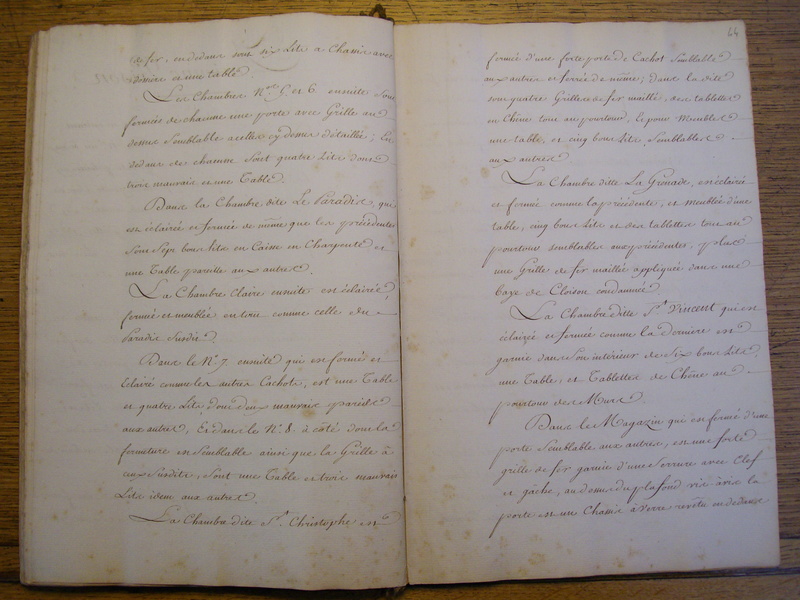 de fer, en dedans sont six Lits a Chassis avec
derriere et une table
Les Chambres N.os 5 et 6 ensuite sont
fermées de chacune une porte avec Grille au
dessus semblable a celles cy dessus détaillée; En
dedans de chacune sont quatre Lits dont
trois mauvais et une Table.
Dans la Chambre dite Le Paradis, qui
est éclairée et fermée de même que les précédentes
sont sept bons lits en Caisse en Charpente et
une Table pareille aux autres.
La Chambre Claire ensuite est éclairée,
fermée et meublée en tout comme celle du
Paradis susdit.
Dans le N.o 7 ensuite qui est fermé et
éclairé comme les autres Cachots, est une Table
et quatre Lits dont deux mauvais pareils
aux autres, Et dans le N.o 8 à côté dont la
fermeture est semblable ainsi que la Grille à
ceux susdits, sont une Table et trois mauvais
Lits idem aux autres.
La Chambre dite S.t Christophe est
64
fermée d'une forte porte de Cachot semblable
aux autres et ferrée de même; dans la dite
sont quatre Grilles de fer maillé, des tablettes
en Chêne tout au pourtour, & pour meubles
une table, et cinq bons Lits semblables
aux autres.
La Chambre ditte La Grenade, est éclairée
et fermée comme la précédente, et meublée d'une
table, cinq bons Lits et des tablettes tout au
pourtour semblables aux précédentes, plus
une Grille de fer maillée appliquée dans une
baye de Cloison condamnée
La Chambre ditte S.t Vincent qui est
éclairée et fermée comme la derniere est
garnie dans son intérieur de six bons Lits,
une Table, et Tablettes de Chêne au
pourtour des Murs.
Dans le Magazin qui est fermé d'une
porte semblable aux autres, est une forte
grille de fer garnie d'une serrure avec Clef
et gâche, au dessus du plafond vis à vis la
porte est un Chassis à verre revêtu en dedans